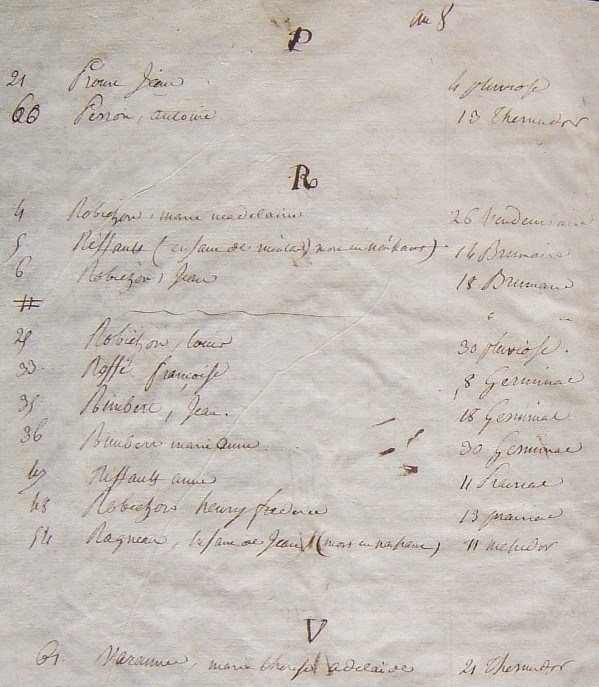 an 8
P
21 Proux Jean 4 pluviose
60 Perron, antoine 13 Thermidor
R
4 Robichon, marie madelaine 26 Vendemiaire
5 Riffault (enfant de nicolas) mort en naissant) 14 Brumaire
6 Robichon, Jean 18 Brumaire
11
29 Robichon, Louis 30 pluviose.
33 Roffé françoise 8 Germinal
35 Rimbert, Jean. 18 Germinal
36 Rimbert marie anne 30 Germinal
47 Riffault anne 11 Prairial
48 Robichon henry frederic 13 prairial
54 Ragneau, enfant de Jean (mort en naissant) 11 messidor
V
61 Varanne, marie therese adelaide 21 Thermidor